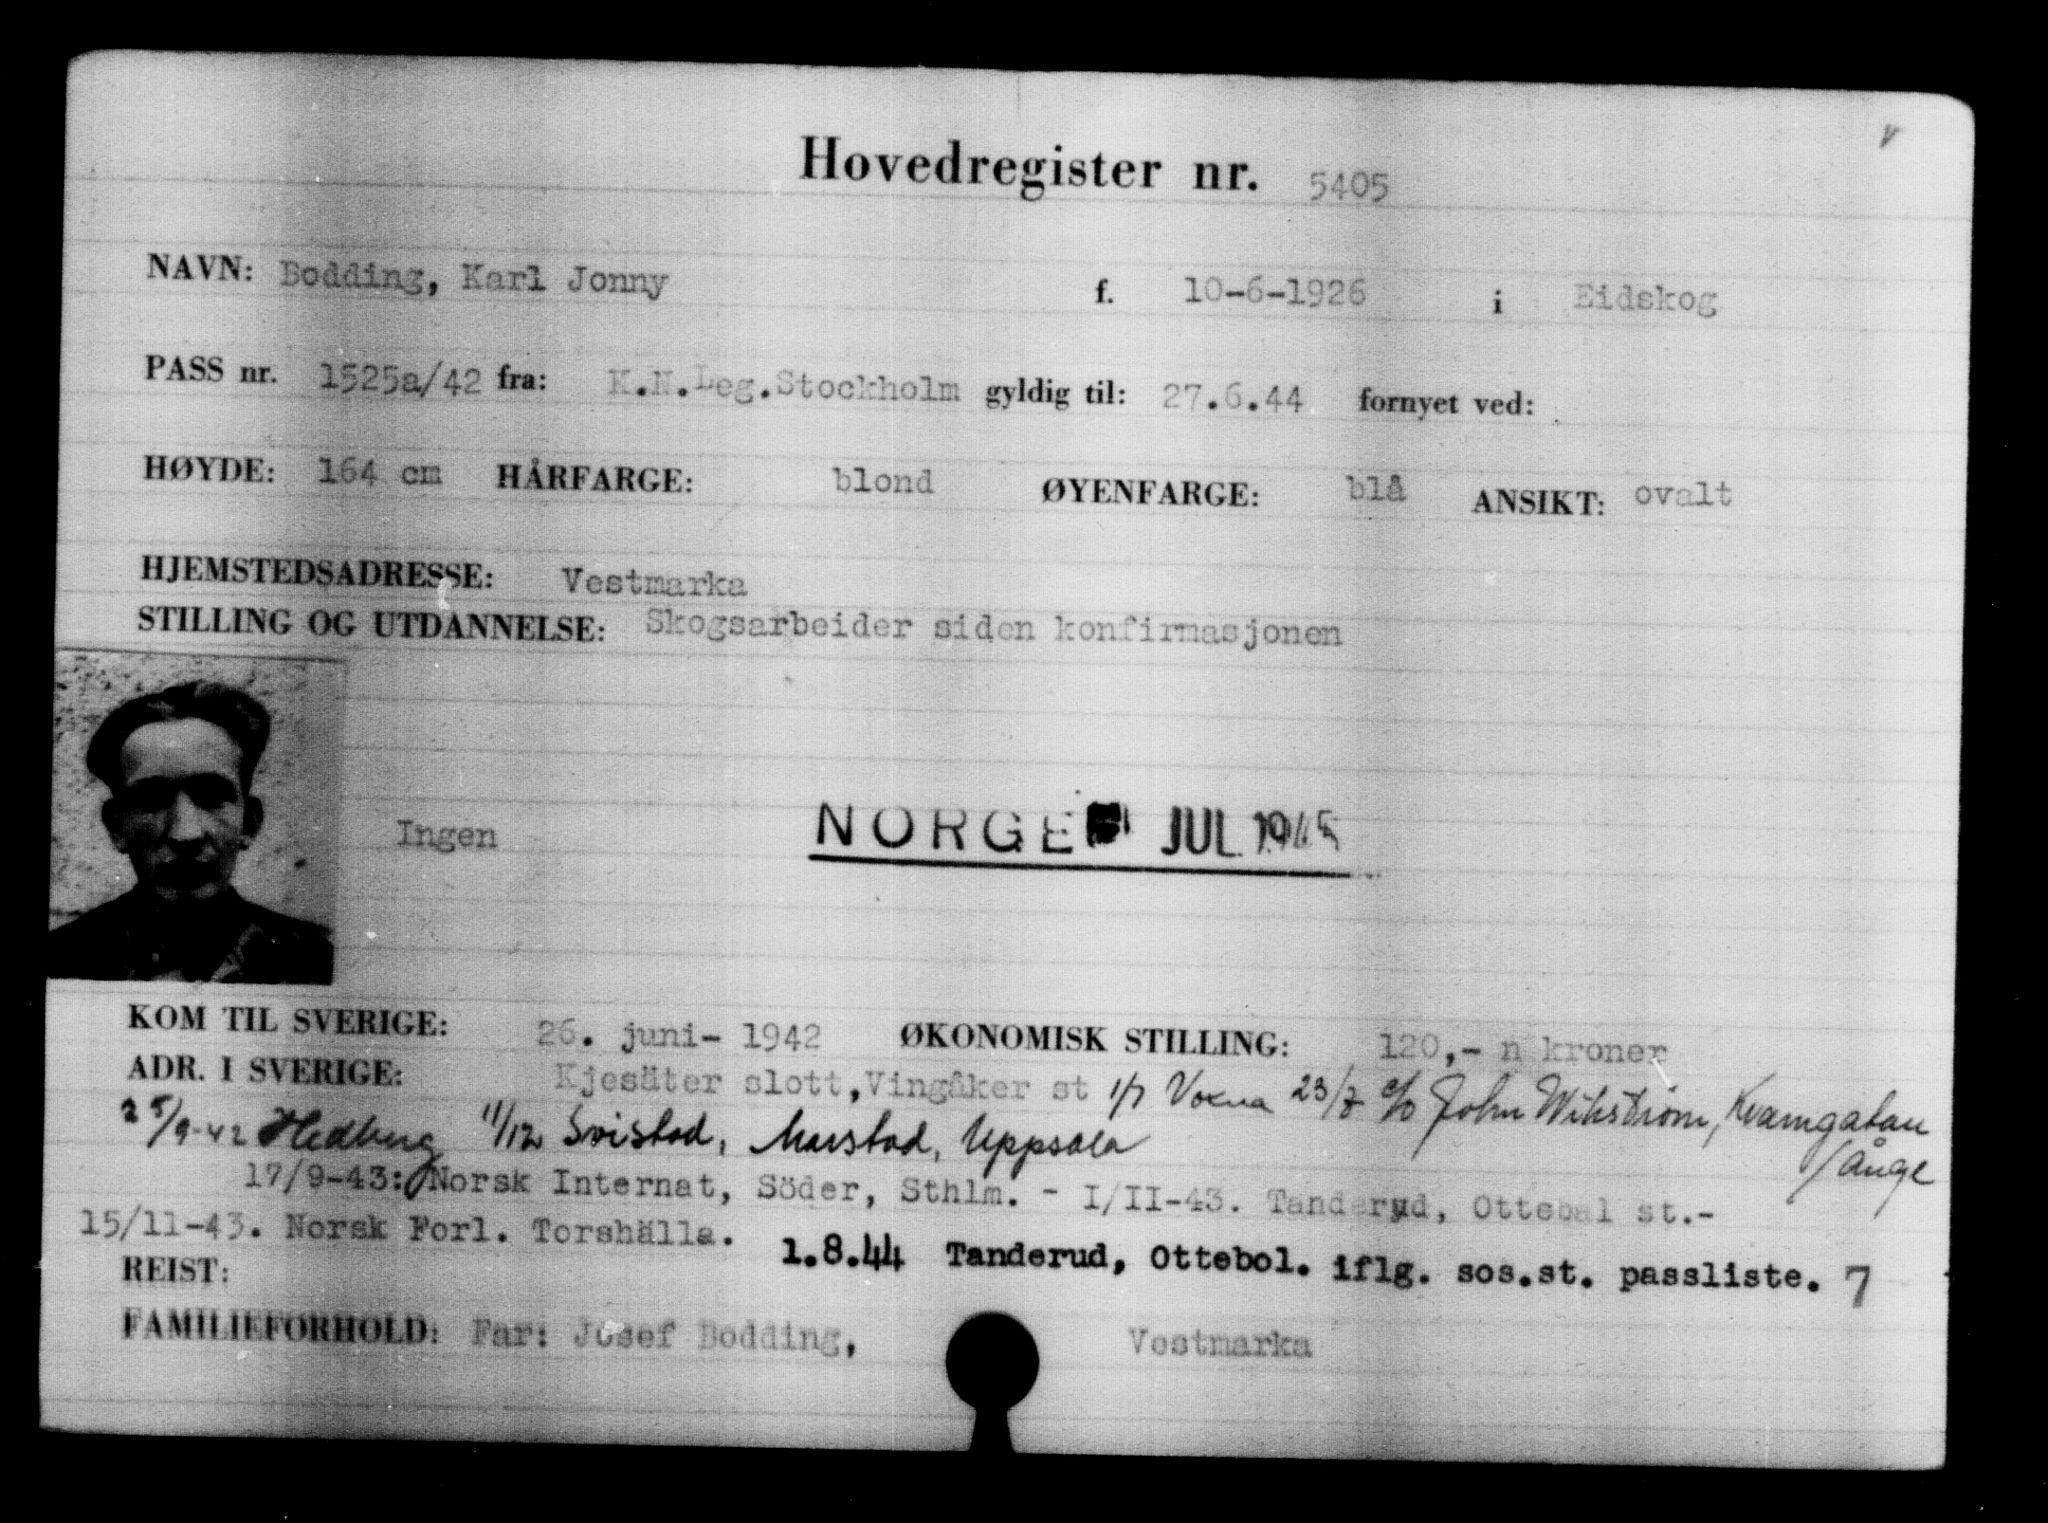 Hovedregister nr. 5405
NAVN: Bodding, Karl Jonny f. 10-6-1926 i Eidskog
PASS nr. 1525a/42 fra: K.N.Leg.Stockholm gyldig til: 27.6.44 fornyet ved:
HØYDE: 164 cm HÅRFARGE: blond ØYENFARGE: blå ANSIKT: ovalt
HJEMSTEDSADRESSE: Vestmarka
STILLING OG UTDANNELSE: Skogsarbeider siden konfirmasjonen
Ingen NORGE JUL 1945
KOM TIL SVERIGE: 26. juni- 1942 ØKONOMISK STILLING: 120,- n kroner
ADR. I SVERIGE: Kjesäter slott,Vingåker st 1/7 Voxna 23/7 c/o John Wikström, Kvarngatan
/Ånge
25/9-42 Hedberg 11/12 Sristad, Marstad, Uppsala
17/9-43: Norsk Internat, Söder, Sthlm. - I/II-43. Tanderud, Ottebol st.-
15/11-43. Norsk Forl. Torshälla. 1.8.44 Tanderud, Ottebol. iflg. sos.st. passliste. 7
REIST:
FAMILIEFORHOLD: Far: Josef Bodding, Vestmarka